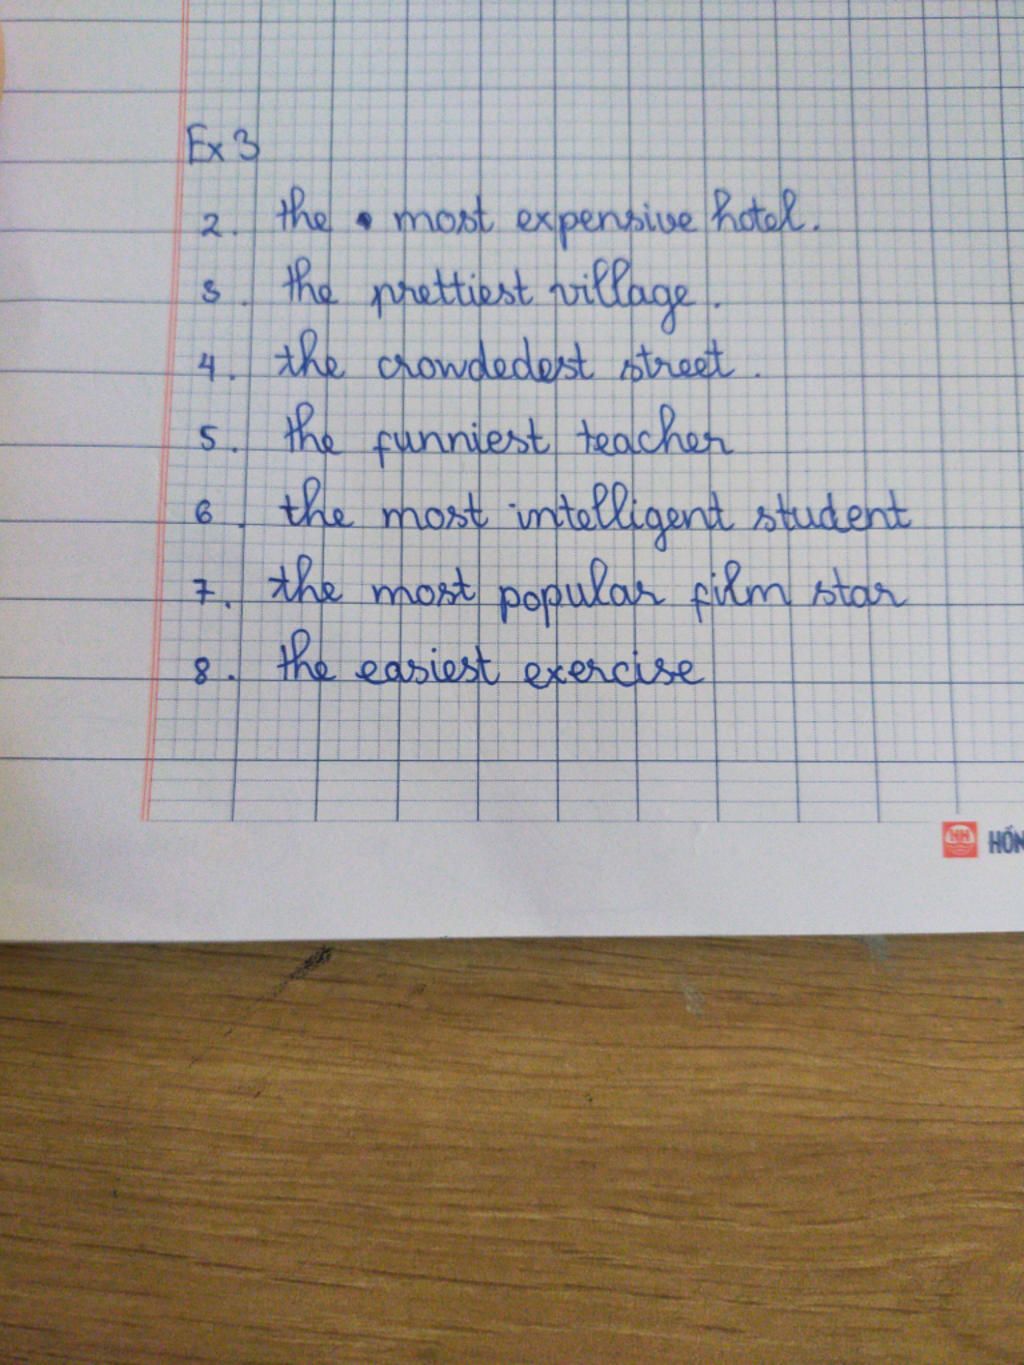 Ex 3
2. the most expensive hotel.
3. the prettiest village.
4. the crowdedest street.
5. the funniest teacher
6. the most intelligent student
7. the most popular film star
8. the easiest exercise
HH